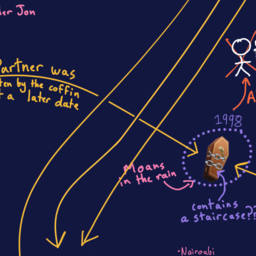 Jon
artner was
by the coffin
a later date
1998
Moans
in the rain
contains
a staircase??
•Nairobi